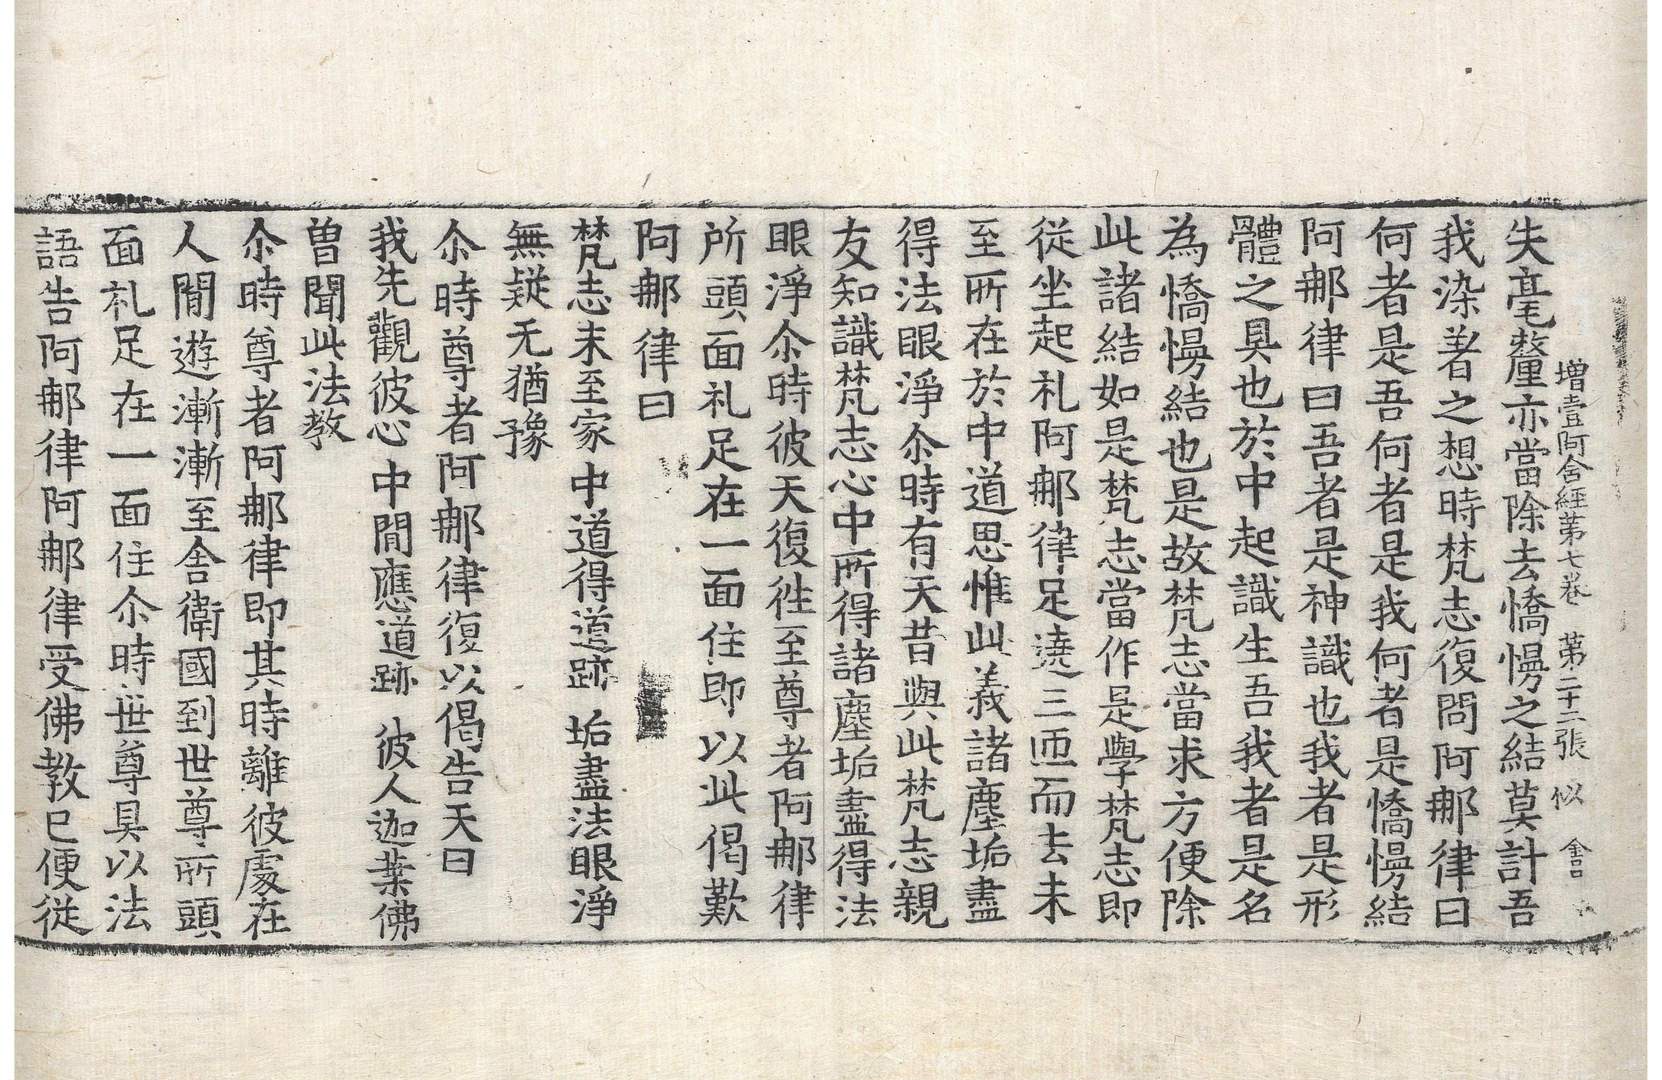 增壹阿含經第七卷 第二十二張 似 含
失毫釐亦當除去憍慢之結莫計吾
我染著之想時梵志復問阿那律曰
何者是吾何者是我何者是憍慢結
阿那律曰吾者是神識也我者是形
體之具也於中起識生吾我者是名
為憍慢結也是故梵志當求方便除
此諸結如是梵志當作是學梵志即
從坐起礼阿那律足遶三匝而去未
至所在於中道思惟此義諸塵垢盡
得法眼淨尒時有天昔與此梵志親
友知識梵志心中所得諸塵垢盡得法
眼淨尒時彼天復往至尊者阿那律
所頭面礼足在一面住即以此偈歎
阿那律曰
梵志未至家中道得道跡 垢盡法眼淨
無疑无猶豫
尒時尊者阿那律復以偈告天曰
我先觀彼心中間應道跡 彼人迦葉佛
曽聞此法教
尒時尊者阿那律即其時離彼處在
人間遊漸漸至舍衛國到世尊所頭
面礼足在一面住尒時世尊具以法
語告阿那律阿那律受佛教已便從